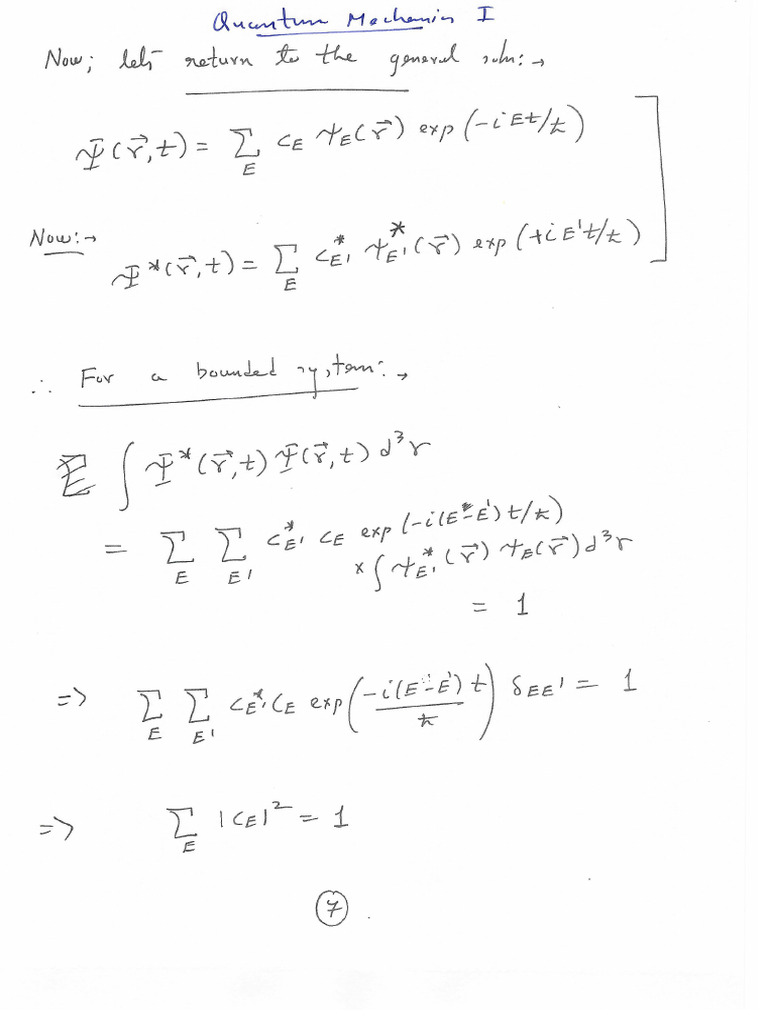 Quantum Mechanics I
Now; let's return to the general soln:→
Ψ(r⃗,t) = Σ_E c_E ψ_E(r⃗) exp(-iEt/ħ)
Now:→
Ψ*(r⃗,t) = Σ_E c*_E' ψ*_E'(r⃗) exp(+iE't/ħ)
∴ For a bounded system:→
∫ Ψ*(r⃗,t) Ψ(r⃗,t) d³r
= Σ_E Σ_E' c*_E' c_E exp(-i(E-E')t/ħ)
× ∫ ψ*_E'(r⃗) ψ_E(r⃗) d³r
= 1
=> Σ_E Σ_E' c*_E' c_E exp(-i(E-E')t/ħ) δ_EE' = 1
=> Σ_E |c_E|² = 1
7